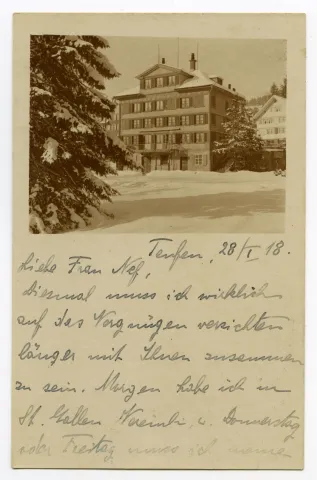 Teufen, 28/I 18.
Liebe Frau Nef,
diesmal muss ich wirklich
auf das Vergnügen verzichten
länger mit Ihnen zusammen
zu sein. Morgen habe ich in
St. Gallen Verein u. Donnerstag
oder Freitag muss ich meine